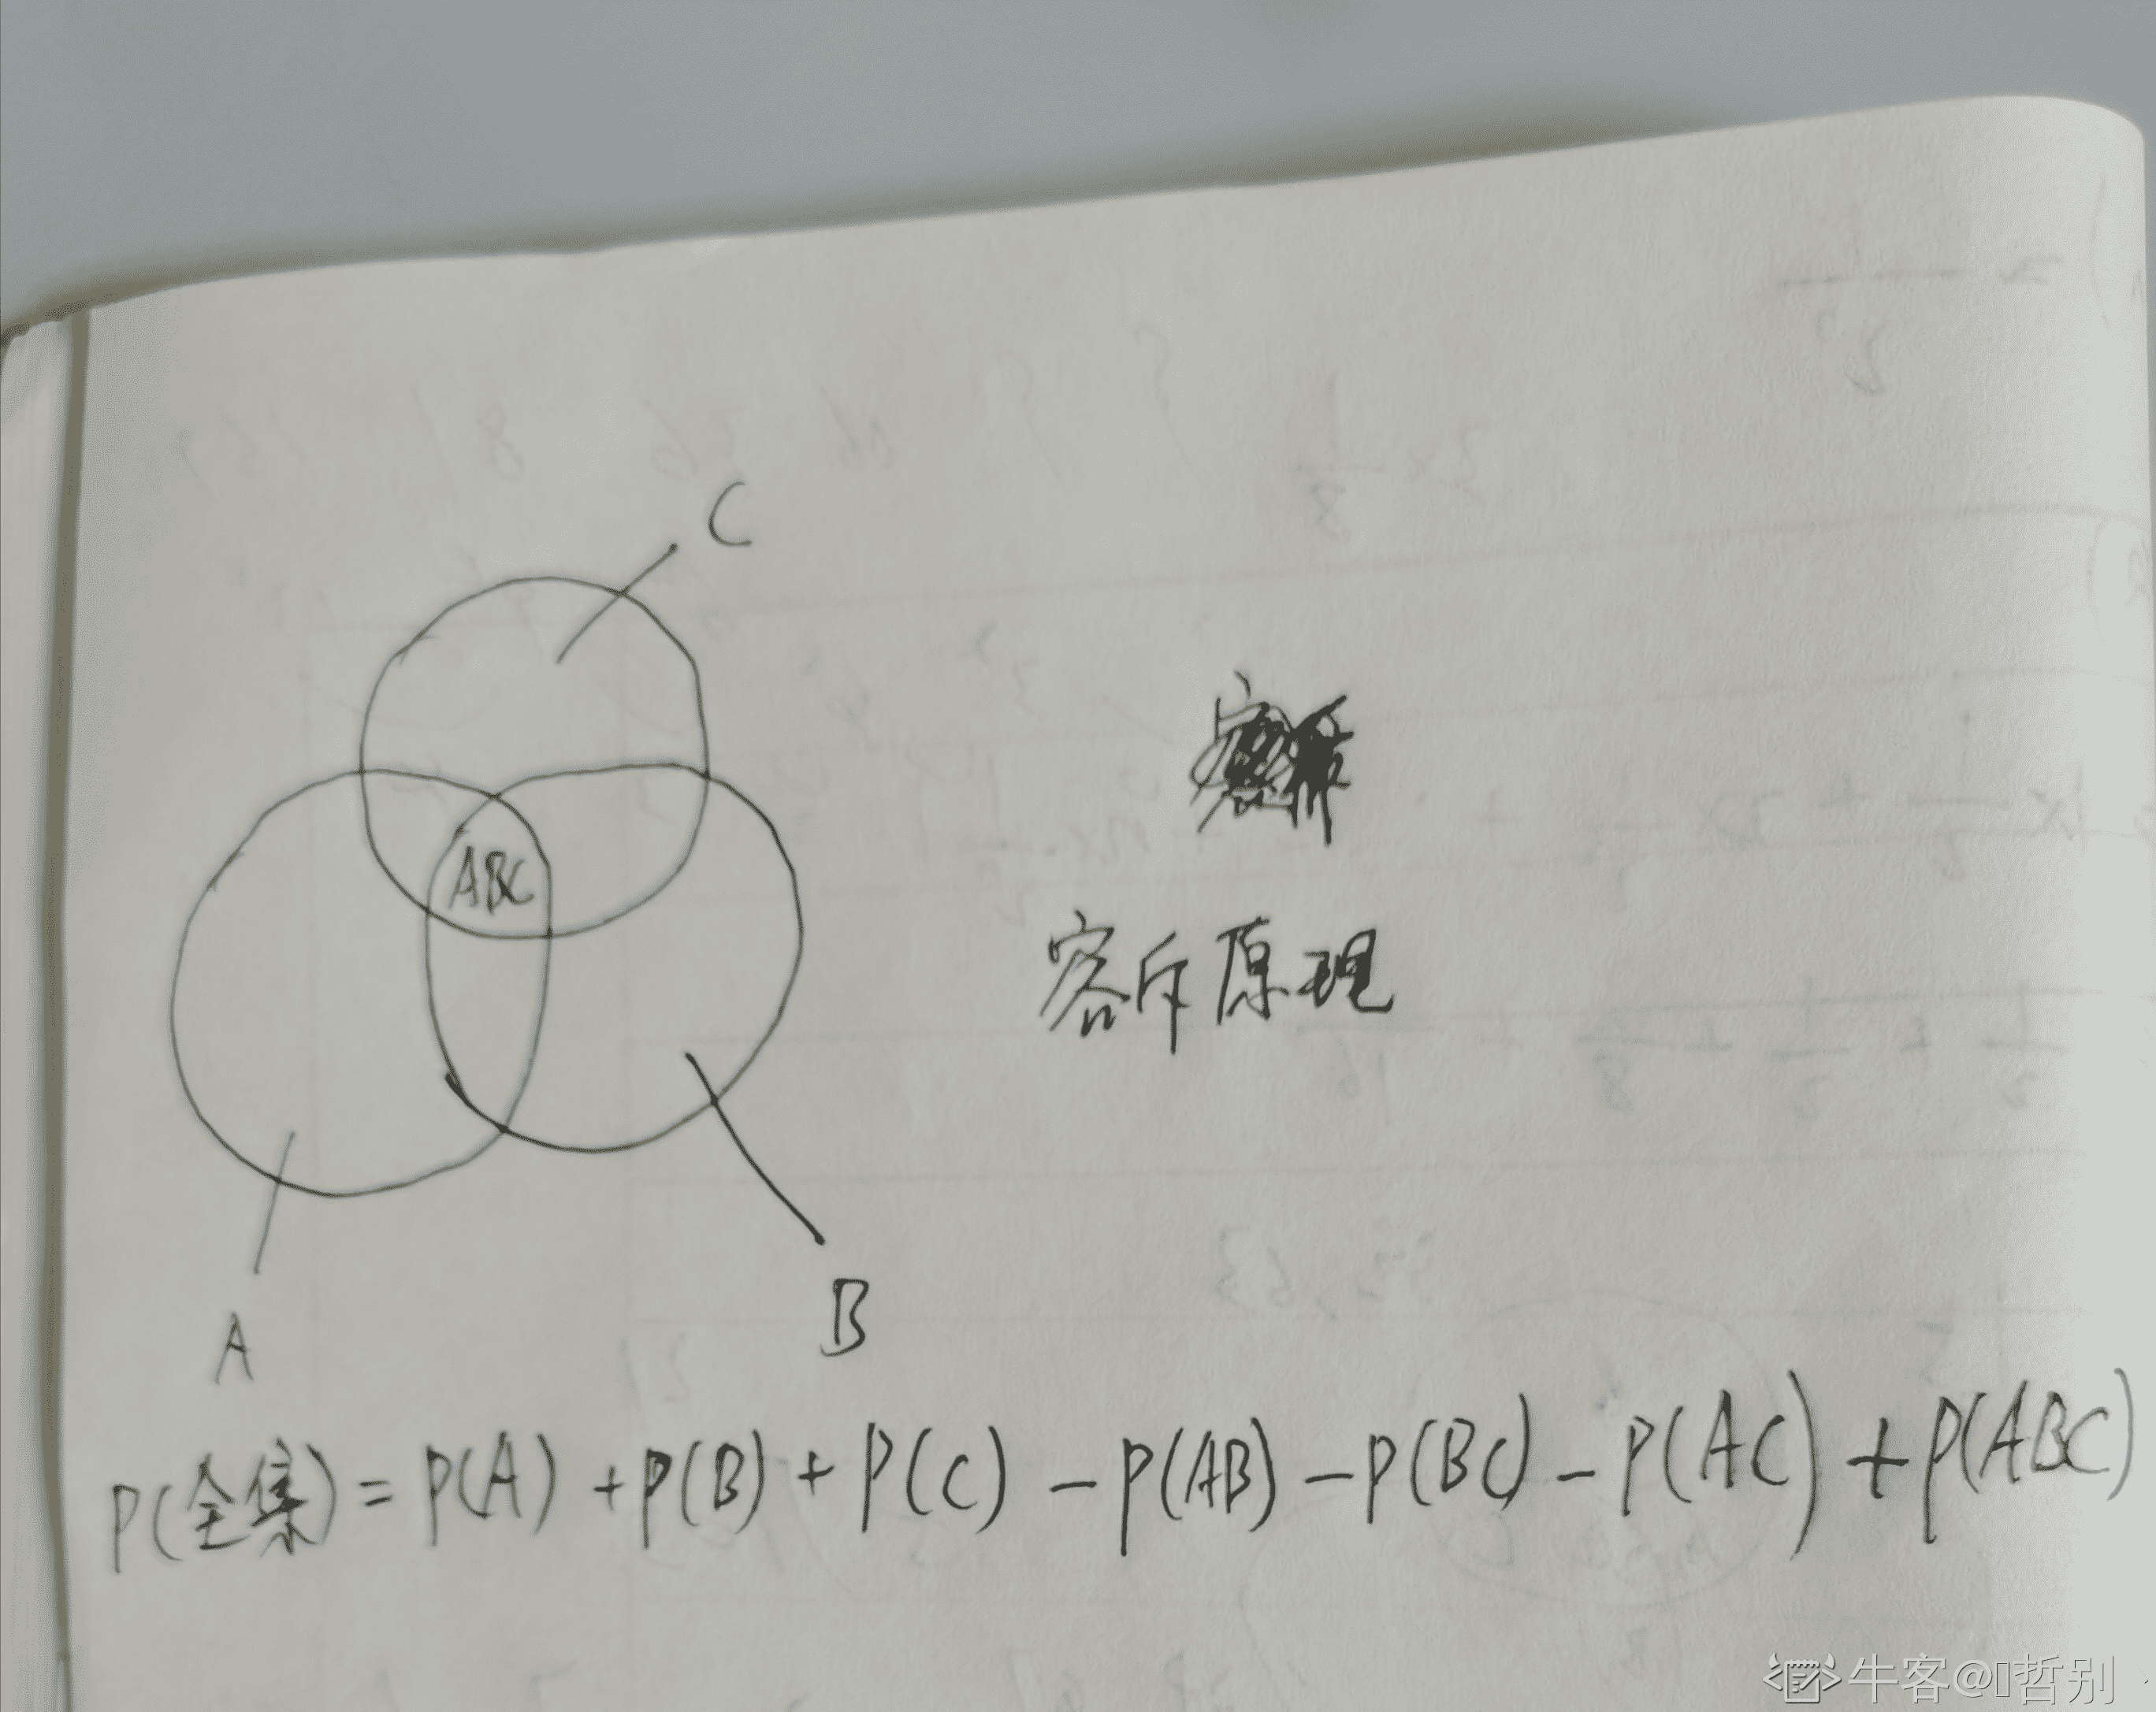 C
ABC
容斥原理
A
B
P(全集) = P(A) + P(B) + P(C) - P(AB) - P(BC) - P(AC) + P(ABC)
牛客@哲别